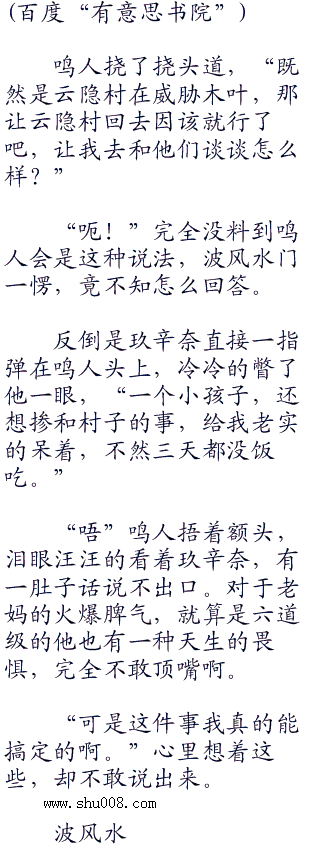 (百度“有意思书院”)
鸣人挠了挠头道，“既
然是云隐村在威胁木叶，那
让云隐村回去因该就行了
吧，让我去和他们谈谈怎么
样？”
“呃！”完全没料到鸣
人会是这种说法，波风水门
一愣，竟不知怎么回答。
反倒是玖辛奈直接一指
弹在鸣人头上，冷冷的瞥了
他一眼，“一个小孩子，还
想掺和村子的事，给我老实
的呆着，不然三天都没饭
吃。”
“唔”鸣人捂着额头，
泪眼汪汪的看着玖辛奈，有
一肚子话说不出口。对于老
妈的火爆脾气，就算是六道
级的他也有一种天生的畏
惧，完全不敢顶嘴啊。
“可是这件事我真的能
搞定的啊。”心里想着这
些，却不敢说出来。
www.shu008.com
波风水